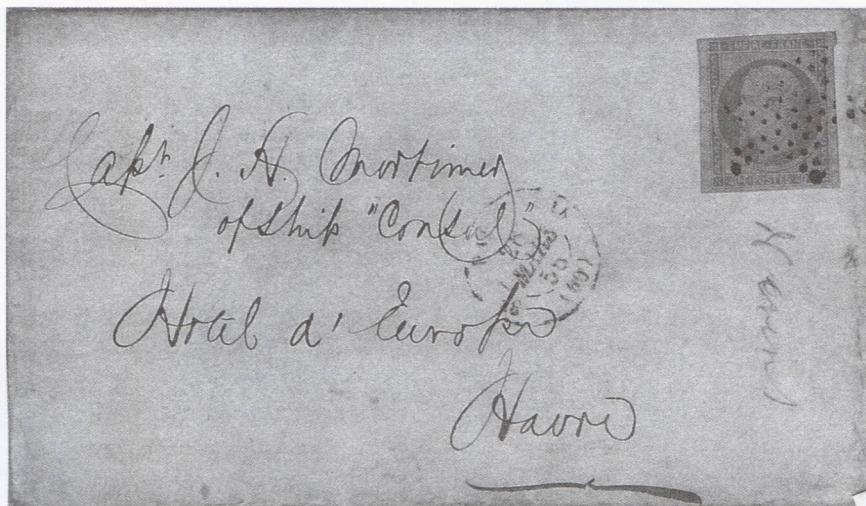 EMPIRE FRANC
Capt. J. H. Mortimer
of Ship "Consul"
Hotel d' Europe
Havre
MARS
55
(60)